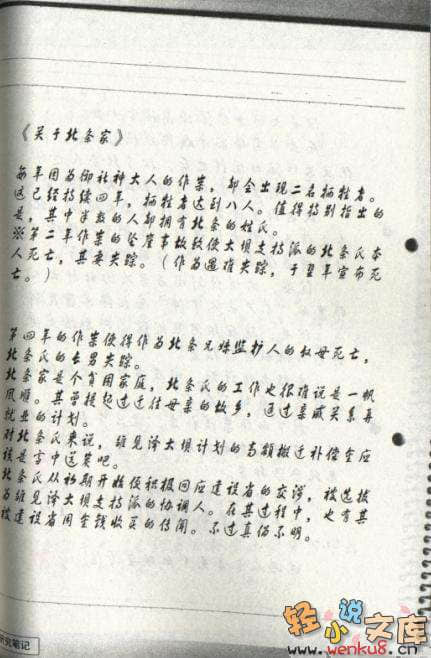 《关于北条家》
每年因为御社神大人的作案，都会出现二名牺牲者。
这已经持续四年，牺牲者达到八人。值得特别指出的
是，其中半数的人都拥有北条的姓氏。
※第二年作案的坠崖事故致使大坝支持派的北条氏本
人死亡，其妻失踪。（作为遇难失踪，于翌年宣布死
亡。）
第四年的作案使得作为北条兄妹监护人的叔母死亡，
北条氏的长男失踪。
北条家是个贫困家庭，北条氏的工作也很难说是一帆
风顺。其曾提起过迁往母亲的故乡，通过亲戚关系再
就业的计划。
对北条氏来说，雏见泽大坝计划的高额搬迁补偿金应
该是雪中送炭吧。
北条氏从初期开始便积极回应建设省的交涉，被选拔
为雏见泽大坝支持派的协调人。在其过程中，也有其
被建设省用金钱收买的传闻。不过真伪不明。
研究笔记
轻小说文库
www.wenku8.cn